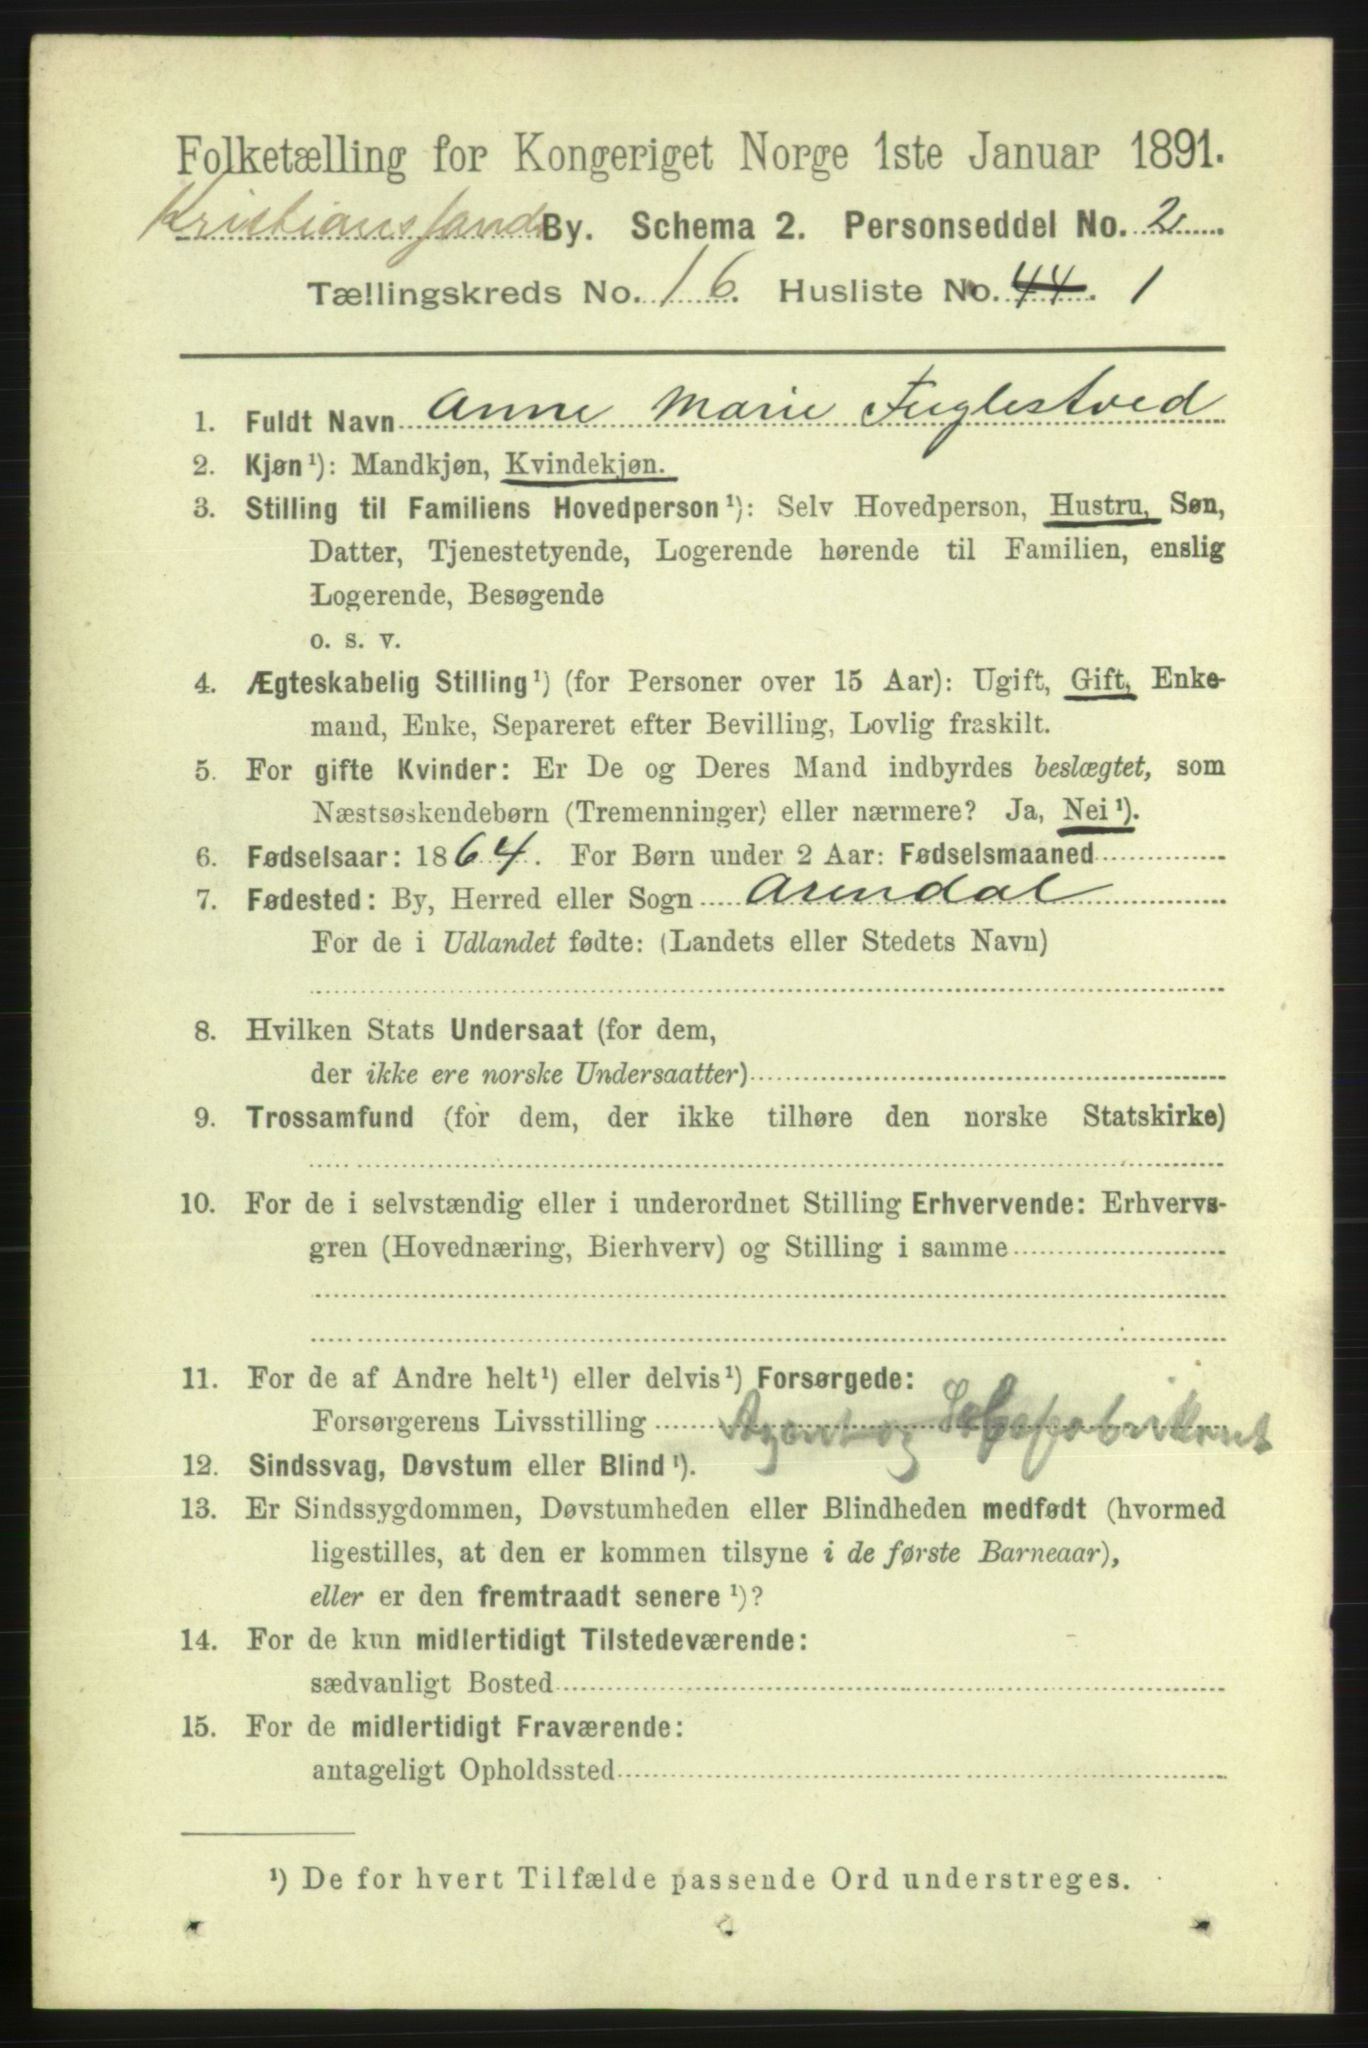 Folketælling for Kongeriget Norge 1ste Januar 1891.
Kristianssand By. Schema 2. Personseddel No. 2.
Tællingskreds No. 16. Husliste No. 44. 1
1. Fuldt Navn Anne Marie Fuglestved
2. Kjøn¹): Mandkjøn, Kvindekjøn.
3. Stilling til Familiens Hovedperson¹): Selv Hovedperson, Hustru, Søn,
Datter, Tjenestetyende, Logerende hørende til Familien, enslig
Logerende, Besøgende
o. s. v.
4. Ægteskabelig Stilling¹) (for Personer over 15 Aar): Ugift, Gift, Enke-
mand, Enke, Separeret efter Bevilling, Lovlig fraskilt.
5. For gifte Kvinder: Er De og Deres Mand indbyrdes beslægtet, som
Næstsøskendebørn (Tremenninger) eller nærmere? Ja, Nei¹).
6. Fødselsaar: 1864. For Børn under 2 Aar: Fødselsmaaned
7. Fødested: By, Herred eller Sogn Arendal
For de i Udlandet fødte: (Landets eller Stedets Navn)
8. Hvilken Stats Undersaat (for dem,
der ikke ere norske Undersaatter)
9. Trossamfund (for dem, der ikke tilhøre den norske Statskirke)
10. For de i selvstændig eller i underordnet Stilling Erhvervende: Erhvervs-
gren (Hovednæring, Bierhverv) og Stilling i samme
11. For de af Andre helt¹) eller delvis¹) Forsørgede:
Forsørgerens Livsstilling Agent og
12. Sindssvag, Døvstum eller Blind¹).
13. Er Sindssygdommen, Døvstumheden eller Blindheden medfødt (hvormed
ligestilles, at den er kommen tilsyne i de første Barneaar),
eller er den fremtraadt senere¹)?
14. For de kun midlertidigt Tilstedeværende:
sædvanligt Bosted
15. For de midlertidigt Fraværende:
antageligt Opholdssted
¹) De for hvert Tilfælde passende Ord understreges.